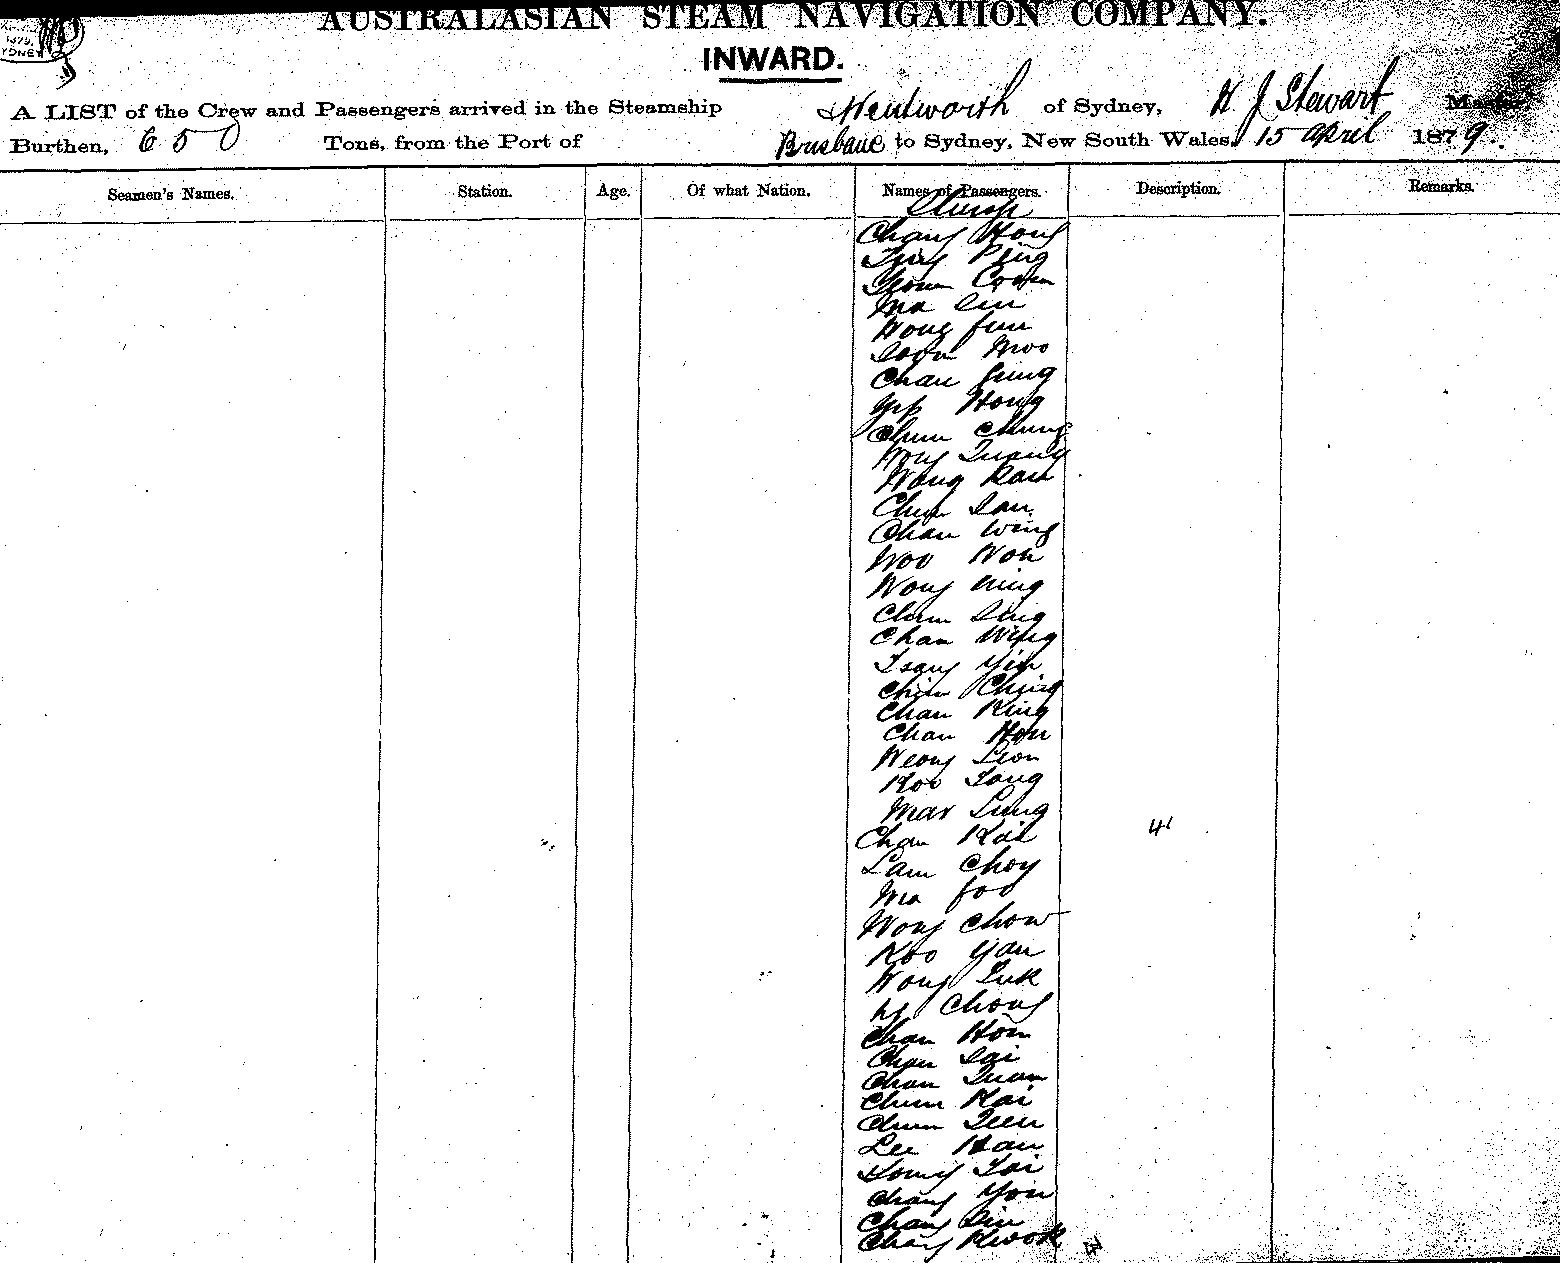 AUSTRALASIAN STEAM NAVIGATION COMPANY.
INWARD.
1879.
A LIST of the Crew and Passengers arrived in the Steamship Wentworth of Sydney, H J Stewart Master
Burthen, 650 Tons, from the Port of Brisbane to Sydney, New South Wales, 15 April 1879.
Seamen's Names. Station. Age. Of what Nation. Names of Passengers. Description. Remarks.
Chang Hong
Ping
Ma Lin
Wong Fun
Moo
Chan Gung
Yip Hong
Chum Chung
Wong Quang
Wong Kan
Chun San
Chan Wing
Woo Won
Wong Ming
Chum Sing
Chan Wing
Tsang Yin
Chim Ching
Chan King
Chan Hon
Weong Leon
Koo Tong
Mar Lung
Chan Kai 41
Lam Choy
Ma Foo
Wong Chow
Koo Yan
Wong Tuk
Chong
Chan Hon
Chan Sai
Chan Quan
Chum Kai
Chum Teen
Lee Han
Tai
Chang You
Chang Sin
Chang Kwok